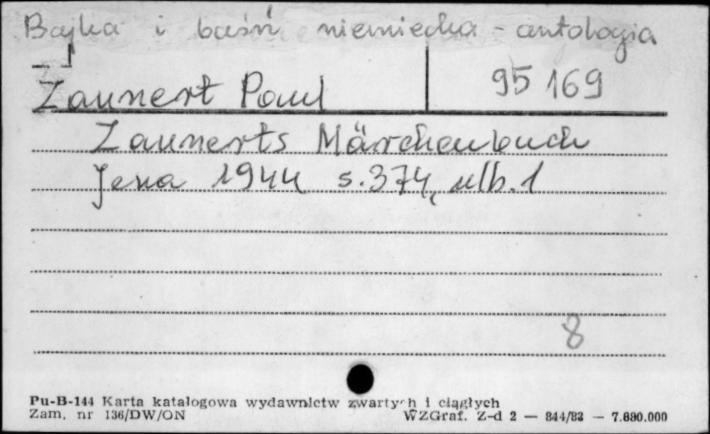 Bajka i baśń niemiecka - antologia
Zaunert Paul
95 169
Zaunerts Märchenbuch
Jena 1944 s. 374, nlb. 1
8
Pu-B-144 Karta katalogowa wydawnictw zwartych i ciągłych
Zam. nr 136/DW/ON WZGraf. Z-d 2 — 844/83 — 7.880.000